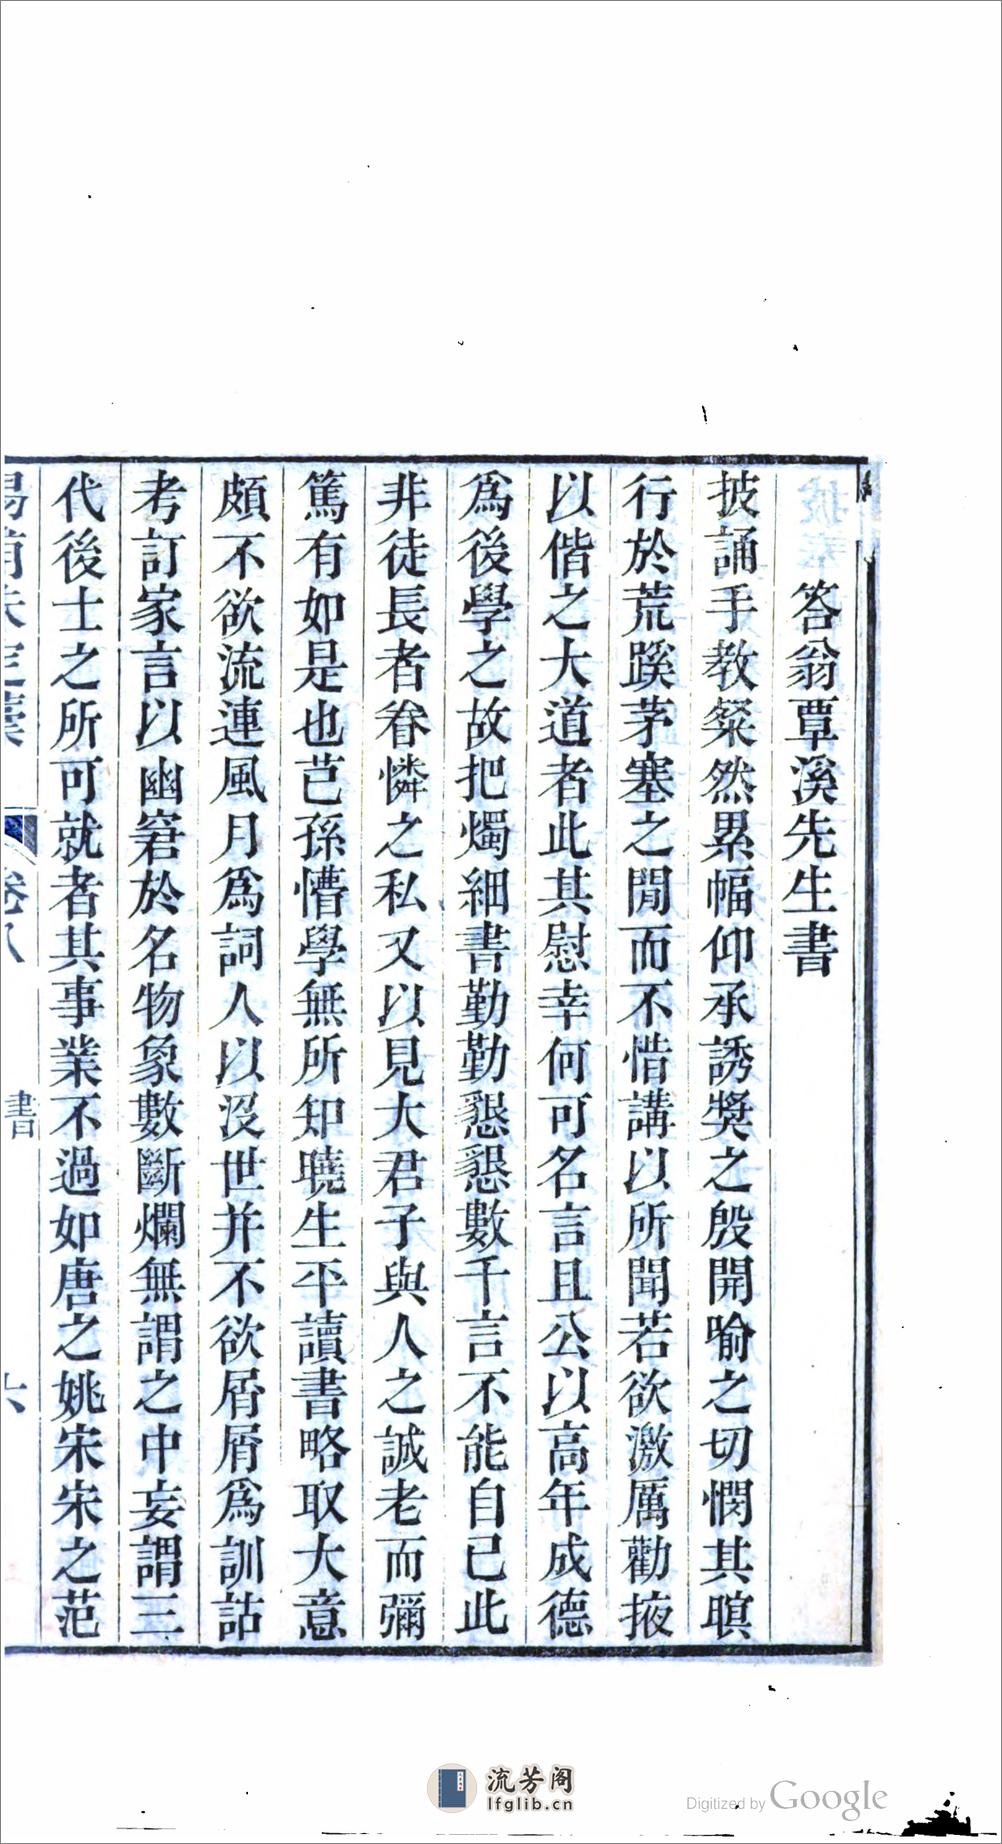 答翁覃溪先生書
披誦手教粲然累幅仰承誘奬之殷開喻之切憫其暝
行於荒蹊茅塞之閒而不惜講以所聞若欲激厲勸掖
以偕之大道者此其慰幸何可名言且公以高年成德
爲後學之故把燭細書勤勤懇懇數千言不能自已此
非徒長者眷憐之私又以見大君子與人之誠老而彌
篤有如是也芑孫懵學無所知曉生平讀書略取大意
頗不欲流連風月爲詞人以沒世并不欲屑屑爲訓詁
考訂家言以幽窘於名物象數斷爛無謂之中妄謂三
代後士之所可就者其事業不過如唐之姚宋宋之范
卷八
書
六
流芳阁
lfglib.cn
Digitized by Google